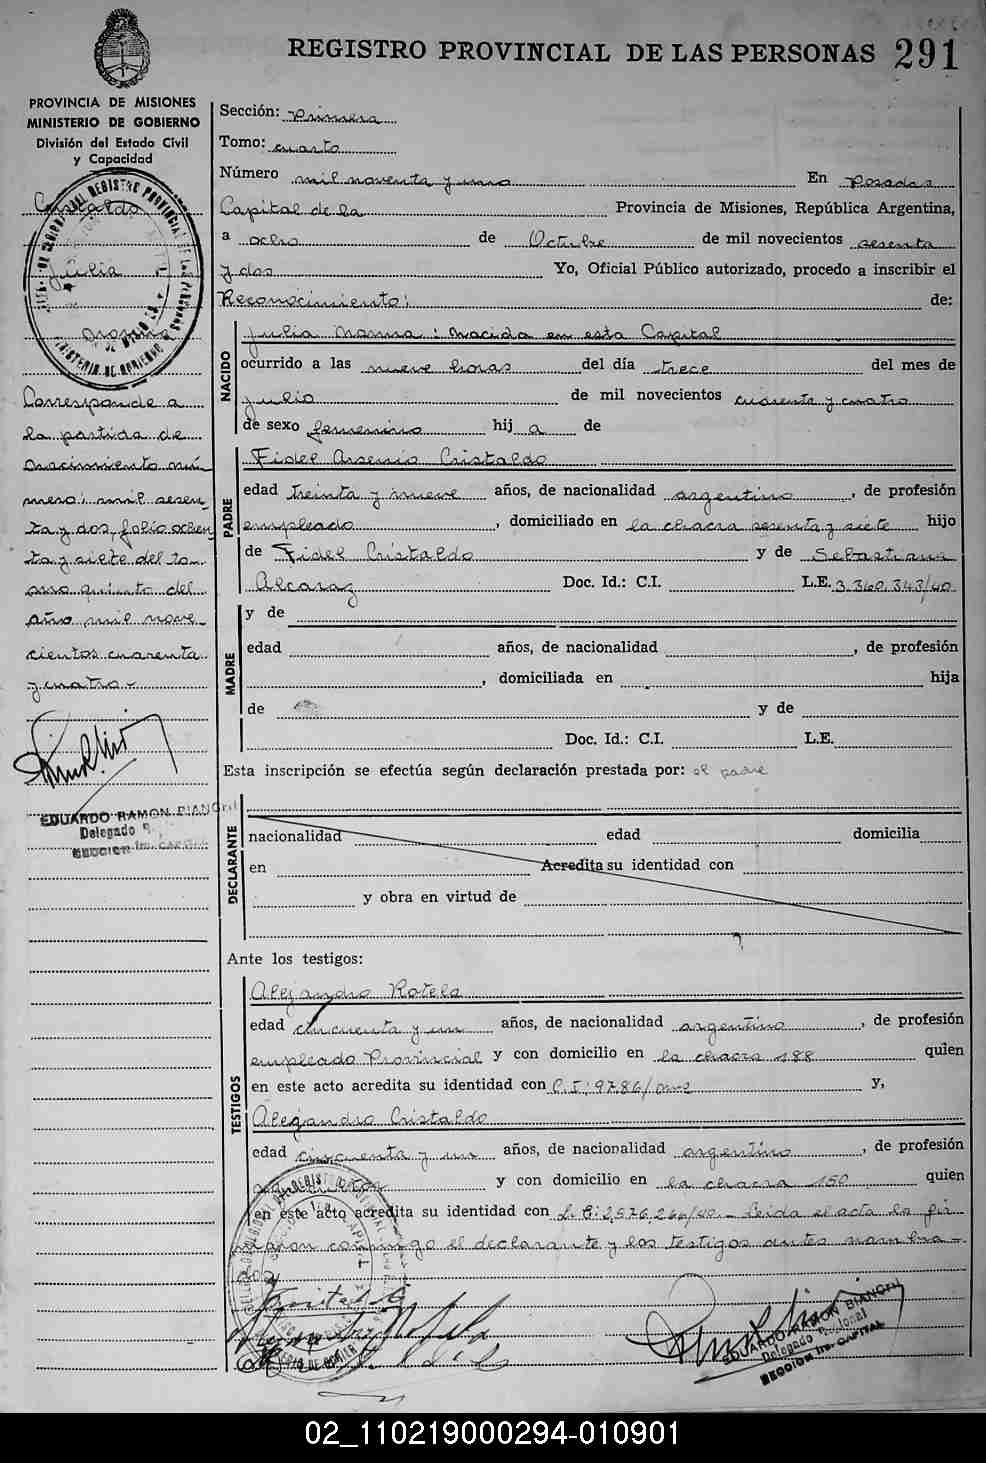 REGISTRO PROVINCIAL DE LAS PERSONAS 291
PROVINCIA DE MISIONES
MINISTERIO DE GOBIERNO
División del Estado Civil
y Capacidad
Cristaldo
Julia
Norma
Corresponde a
la partida de
nacimiento nú-
mero: mil sesen-
ta y dos, folio ochen
ta y siete del to-
mo quinto del
año mil nove-
cientos cuarenta
y cuatro-
EDUARDO RAMON BIANCHI
Delegado
SECCION Ira. CAPITAL
Sección: Primera
Tomo: cuarto
Número mil noventa y uno En Posadas
Capital de la Provincia de Misiones, República Argentina,
a ocho de Octubre de mil novecientos sesenta
y dos Yo, Oficial Público autorizado, procedo a inscribir el
Reconocimiento: de:
NACIDO
Julia Norma: nacida en esta Capital
ocurrido a las nueve horas del día trece del mes de
julio de mil novecientos cuarenta y cuatro
de sexo femenino hij a de
PADRE
Fidel Arsenio Cristaldo
edad treinta y nueve años, de nacionalidad argentino, de profesión
empleado, domiciliado en la chacra sesenta y siete hijo
de Fidel Cristaldo y de Sebastiana
Alcaraz Doc. Id.: C.I. L.E. 3.360.343/40
MADRE
y de
edad años, de nacionalidad , de profesión
, domiciliada en hija
de y de
Doc. Id.: C.I. L.E.
Esta inscripción se efectúa según declaración prestada por: el padre
DECLARANTE
nacionalidad edad domicilia
en Acredita su identidad con
y obra en virtud de
Ante los testigos:
TESTIGOS
Alejandro Rotela
edad cincuenta y un años, de nacionalidad argentino, de profesión
empleado Provincial y con domicilio en la chacra 188 quien
en este acto acredita su identidad con C.I: 9786/ y,
Alejandro Cristaldo
edad cincuenta y un años, de nacionalidad argentino, de profesión
y con domicilio en la chacra 150 quien
en este acto acredita su identidad con 2,576,266/40 - Leida el acta la fir
maron conmigo el declarante y los testigos antes nombra-
dos
EDUARDO RAMON BIANCHI
Delegado Regional
SECCION Ira. CAPITAL
02_110219000294-010901